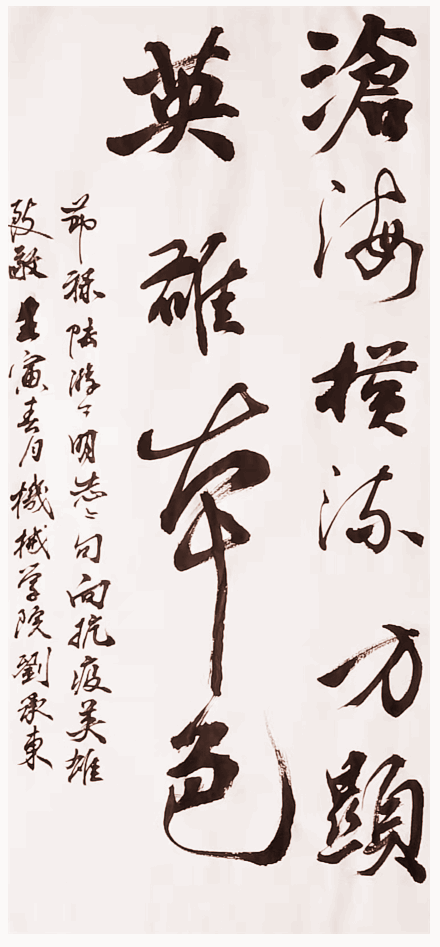 滄海横流方顯
英雄本色
節錄陆游之明志之句向抗疫英雄
致敬壬寅春月機械学院劉承東